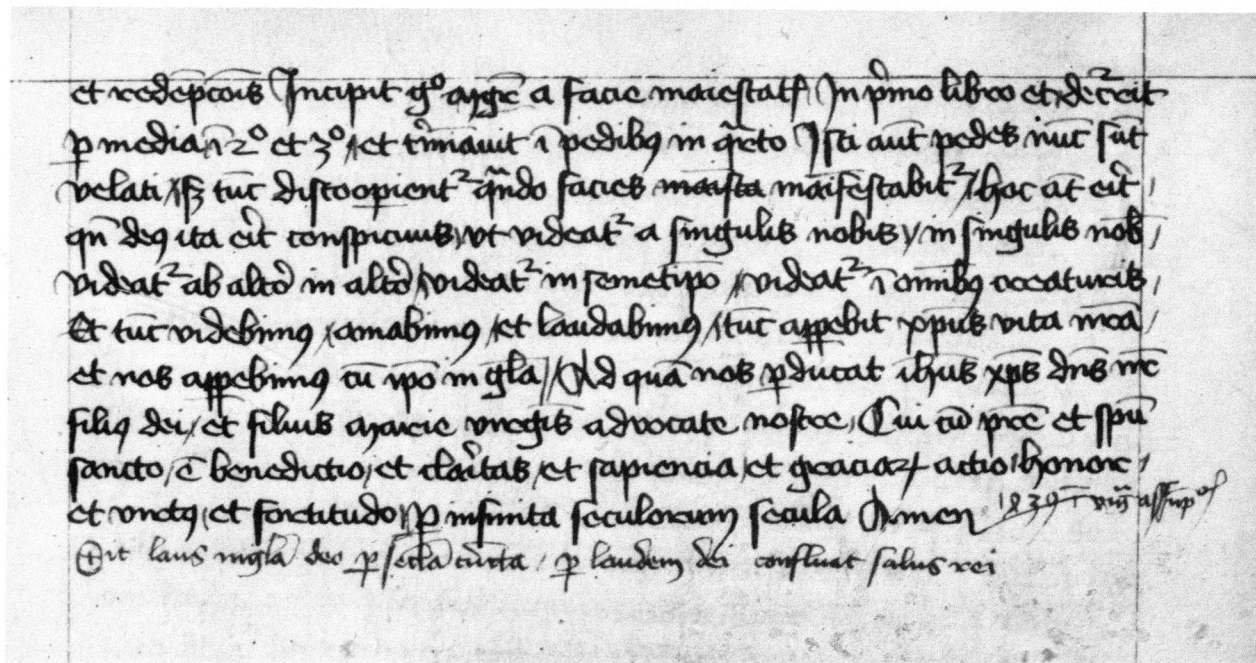 et redēpcōis Incipit gͦ a facie maiestatꝭ In pͥmo libro et decͬeit
ꝑ media ī 2ͦ et 3ͦ et tͥmīauit ī pedibꝯ in qͣrto Isti aūt pedes nūc sūt
velati sꝫ tūc discoopientᷣ qn̄do facies maīfestabitᷣ hoc āt eͥt
qn̄ deꝯ ita eͥt conspicuus vt videatᷣ a singulis nobis in singulis nob̄
videatᷣ ab altͦo in altͦo videatᷣ in semetip̄o videatᷣ ī om̄ibꝯ creaturis
Et tūc videbimꝯ amabimꝯ et laudabimꝯ tūc apꝑebit xp̄us vita
et nos apꝑebimꝯ cū ip̄o in gl̄a Ad quā nos ꝑducat ih̄us xp̄s dn̄s nr̄
filiꝯ dei et filius marie virgīs advocate nostre Cui cū pr̄e et sp̄u
sancto ē benedictio et claͥtas et sapiencia et graciaꝝ actio honor
et virtꝯ et fortitudo ꝑ infinita seculorum secula Amen
Sit laus in gl̄a deo ꝑ secl̄a cūcta ꝑ laudem dei confluat salus rei